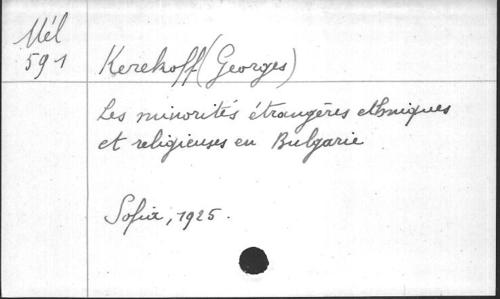 Mél
591
Kerekoff (Georges)
Les minorités étrangères ethniques
et religieuses en Bulgarie
Sofia, 1925.